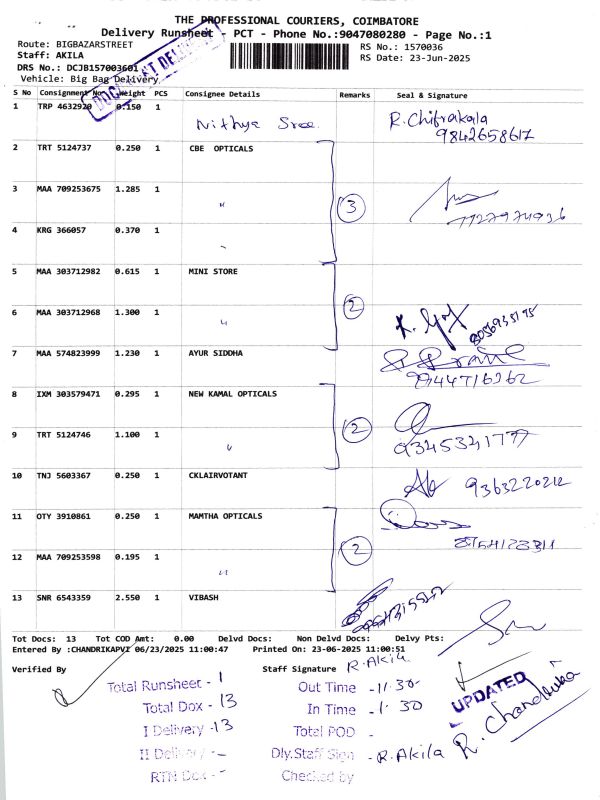 THE PROFESSIONAL COURIERS, COIMBATORE
Delivery Runsheet - PCT - Phone No.:9047080280 - Page No.:1
Route: BIGBAZARSTREET RS No.: 1570036
Staff: AKILA RS Date: 23-Jun-2025
DRS No.: DCJB157003601
Vehicle: Big Bag Delivery
S No Consignment No. Weight PCS Consignee Details Remarks Seal & Signature
1 TRP 4632920 0.150 1 Nithya Sree R.Chitrakala
9842658617
2 TRT 5124737 0.250 1 CBE OPTICALS
3 MAA 709253675 1.285 1 " 3
4 KRG 366057 0.370 1
5 MAA 303712982 0.615 1 MINI STORE
2
6 MAA 303712968 1.300 1 "
7 MAA 574823999 1.230 1 AYUR SIDDHA
9944716262
8 IXM 303579471 0.295 1 NEW KAMAL OPTICALS
2
9 TRT 5124746 1.100 1 " 9345341777
10 TNJ 5603367 0.250 1 CKLAIRVOTANT 9363220212
11 OTY 3910861 0.250 1 MAMTHA OPTICALS
2
12 MAA 709253598 0.195 1 "
13 SNR 6543359 2.550 1 VIBASH
Tot Docs: 13 Tot COD Amt: 0.00 Delvd Docs: Non Delvd Docs: Delvy Pts:
Entered By :CHANDRIKAPVI 06/23/2025 11:00:47 Printed On: 23-06-2025 11:00:51
Verified By Staff Signature R.Akila
Total Runsheet - 1 Out Time - 11.30
Total Dox - 13 In Time - 1.30
I Delivery - 13 Total POD -
II Delivery - - Dly.Staff Sign - R.Akila
RTN Dox - - Checked by
UPDATED
R. Chandrika